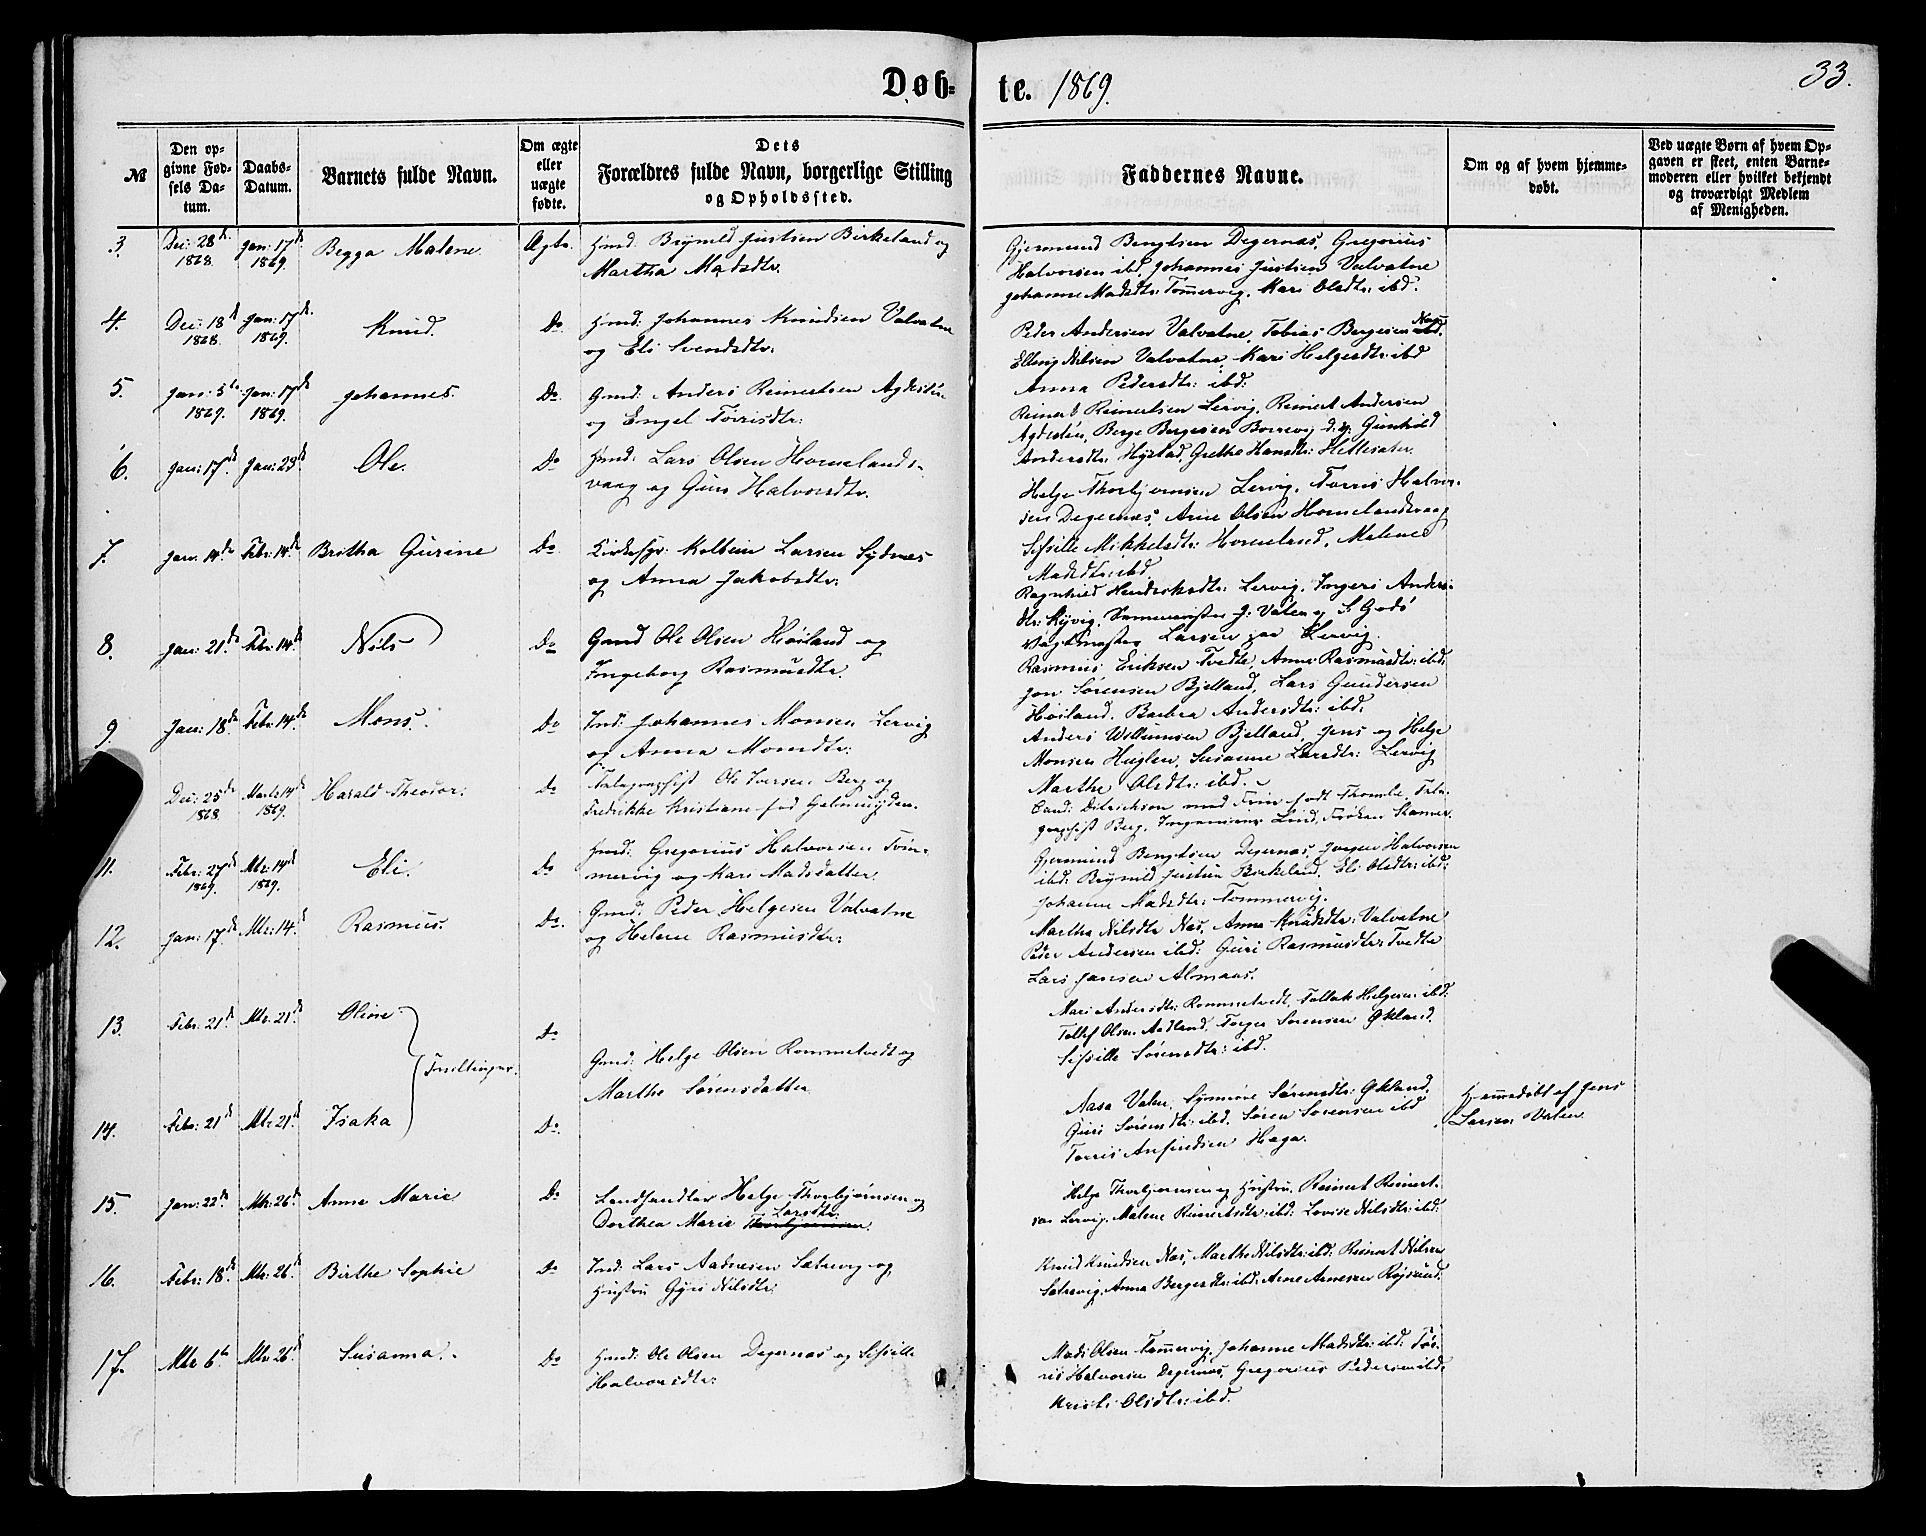 Døb-
te. 1869.
33.
№
Den op-
givne Fød-
sels Da-
tum.
Daabs-
Datum.
Barnets fulde Navn.
Om ægte
eller
uægte
fødte.
Dets
Forældres fulde Navn, borgerlige Stilling
og Opholdssted.
Faddernes Navne.
Om og af hvem hjemme-
døbt.
Ved uægte Børn af hvem Op-
gaven er skeet, enten Barne-
moderen eller hvilket bekjendt
og troværdigt Medlem
af Menigheden.
3. Dec: 28de Jan: 17de Begga Malene. Ægte. Gmd. Brynild Justsen Birkeland og
1868. 1869.
Martha Madsdtr.
Gjermund Bengtsen Degernæs, Gregorius
Halvorsen ibd, Johannes Justsen Valvatne
Johanne Madsdtr: Tømmervig, Kari Olsdtr: ibd.
4. Dec: 18de Jan: 17de Knud. Do Gmd: Johannes Knudsen Valvatne
1868. 1869.
og Eli Svendsdtr:
Peder Andersen Valvatne, Tobias Bergesen Næs
Elling Nilsen Valvatne, Kari Helgesdtr: ibd
Anna Pedersdtr: ibd:
5. Jan: 5te Jan: 17de Johannes. Do. Gmd: Anders Reinertsen Agdestèn
1869. 1869.
og Engel Torrisdtr:
Reinert Reinertsen Lervig, Reinert Andersen
Agdestèn, Berge Bergesen Borrevig d. y. Gunhild
Andersdtr: Hystad, Grethe Hansdtr: Hettesæter.
6. Jan: 17de Jan: 23de Ole. Do Gmd: Lars Olsen Hovelands-
vaag og Guri Halvorsdtr.
Helge Thorbjørnsen Lervig, Torris Halvor-
sen Degernæs, Arne Olsen Hovelandsvaag
Sissille Mikkelsdtr: Hoveland, Malene
Madsdtr: ibd.
7. Jan: 14de Febr: 14de Britha Gurine Do. Kirkesgr: Kolbein Larsen Sydnæs
og Anna Jakobsdtr:
Ragnhild Hendriksdtr: Lervig, Ingeri Anders-
dtr: Kyvig, J: Valen og S. Godø
Larsen paa Lervig.
8. Jan: 21de Febr: 14de Nils Do Gmd Ole Olsen Høiland og
Ingeborg Rasmusdtr.
Rasmus Eriksen Tvedte, Anna Rasmusdtr: ibd.
Jon Sørensen Bjelland, Lars Gundersen
Høiland, Barbra Andersdtr: ibd.
9. Jan: 18de Febr: 14de Mons. Do Ind: Johannes Monsen Lervig
og Anna Monsdtr:
Anders Willumsen Bjelland, Jens og Helge
Monsen Huglen, Susanne Larsdtr: Lervig
Marthe Olsdtr: ibd.
Dec: 25de Marts 14de Harald Theodor. Do Telegraphist Ole Iversen Berg og
1868. 1869.
Fredrikke Kristiane fød Gjelmuyden.
Cand: Ditrikson med Frue født Thomle, Tele-
graphist Berg, Ingenieur Lind, Frøken Stamer.
11. Febr: 27de Mts: 14de Eli. Do Gmd: Gregorius Halvorsen Tøm-
1869. 1869.
mervig og Kari Madsdatter.
Gjermund Bengtsen Degernæs, Jørgen Halvorsen
ibd: Brynild Justsen Birkeland, Eli Olsdtr: ibd:
Johanne Madsdtr: Tømmervig.
12. Jan: 17de Mts: 14de Rasmus. Do. Gmd: Peder Helgesen Valvatne
og Helene Rasmusdtr:
Martha Nilsdtr Næs, Anna Knudsdtr: Valvatne
Peder Andersen ibd: Guri Rasmusdtr: Tvedte
Lars Jansen Almaas.
13. Febr: 21de Mts: 21de Oline. Do
Tvillinger.
Gmd: Helge Olsen Rommetvedt og
Marthe Sørensdatter
Mari Andersdtr: Rommetvedt, Tollak Helgesen ibd:
Tollef Olsen Aadland, Torger Sørensen Økland,
Sissille Sørensdtr: ibd.
14. Febr: 21de Mts: 21de Isaka Do.
Aasa Valen, Synnøve Sørensdtr: Økland,
Guri Sørensdtr: ibd, Søren Sørensen ibd
Torris Anfindsen Haga.
Hjemmedøbt af Jens
Larsen Valen
15. Jan: 22de Mts: 26de Anne Marie Do Landhandler Helge Thorbjørnsen og
Dorthea Marie Thorbjørnsen Larsdtr:
Helge Thorbjørnsen og Hustru, Reinert Reinert-
sen Lervig, Malene Reinertsdtr: ibd: Lovise Nilsdtr: ibd:
16. Febr: 18de Mts: 26de Birthe Sophie Do Ind: Lars Aadnesen Sætrevig og
Hustru Gyri Nilsdtr:
Knud Knudsen Næs, Marthe Nilsdtr: ibd: Reinert Nilsen
Sætrevig, Anna Bergesdtr: ibd: Arne Arnesen Røjsund.
17. Mts 6te Mts 26de Susanna. Do Gmd: Ole Olsen Degernæs og Sissille
Halvorsdtr:
Mads Olsen Tømmervig, Johanne Madsdtr: ibd: Tor-
ris Halvorsen Degernæs, Gregorius Pedersen ibd:
Kristi Olsdtr: ibd.